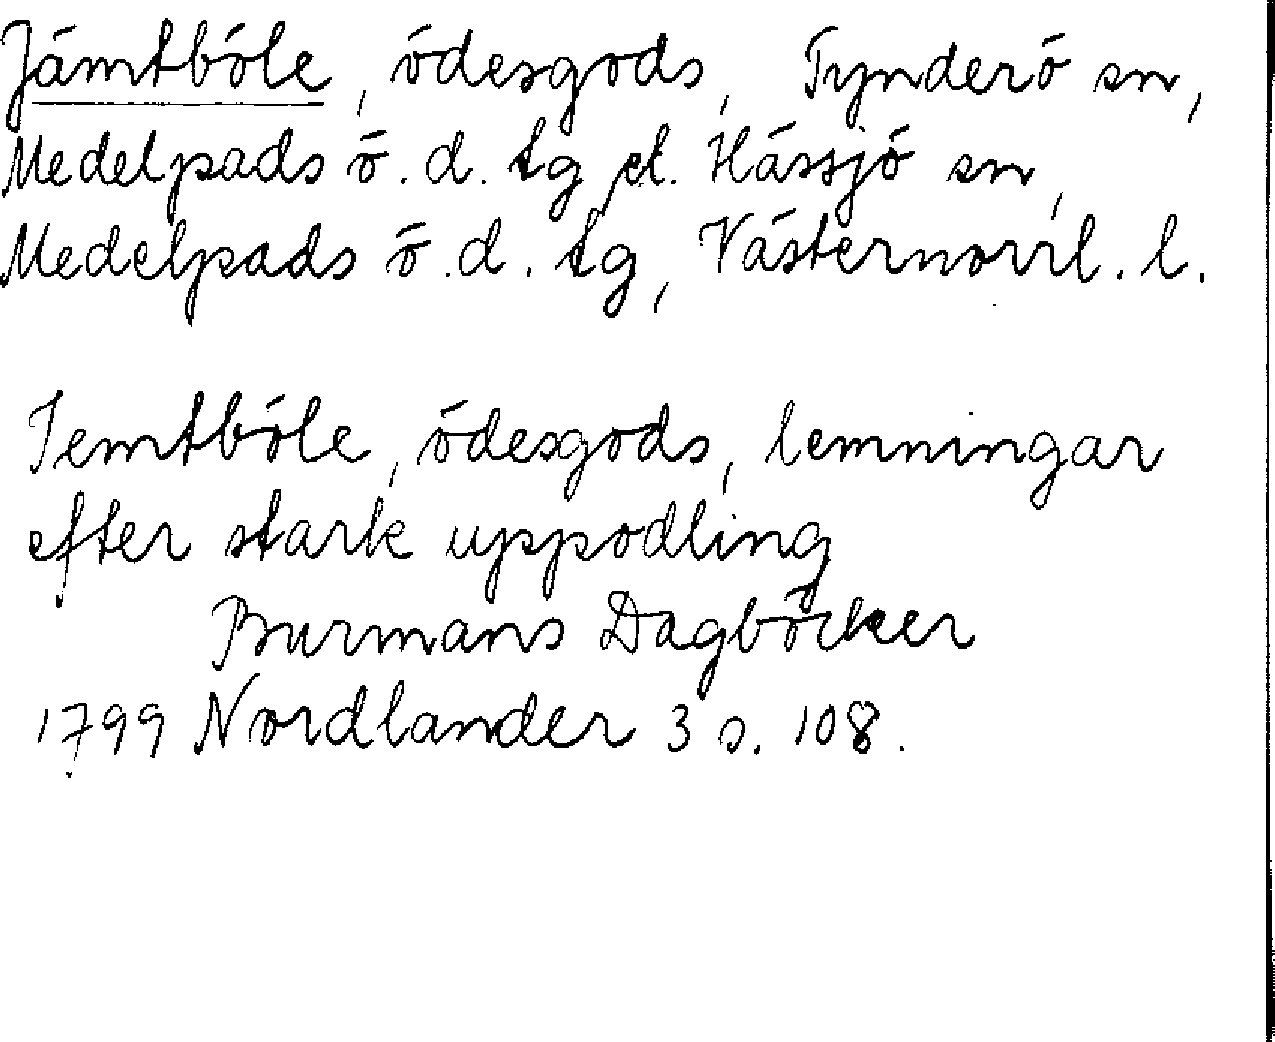 Jämtböle, ödesgods, Tynderö sn,
Medelpads ö. d. tg el. Hässjö sn,
Medelpads ö. d. tg, Västernorrl. l.
Jemtböle, ödesgods, lemningar
efter stark uppodling
Burmans Dagböcker
1799 Nordlander 3 s. 108.